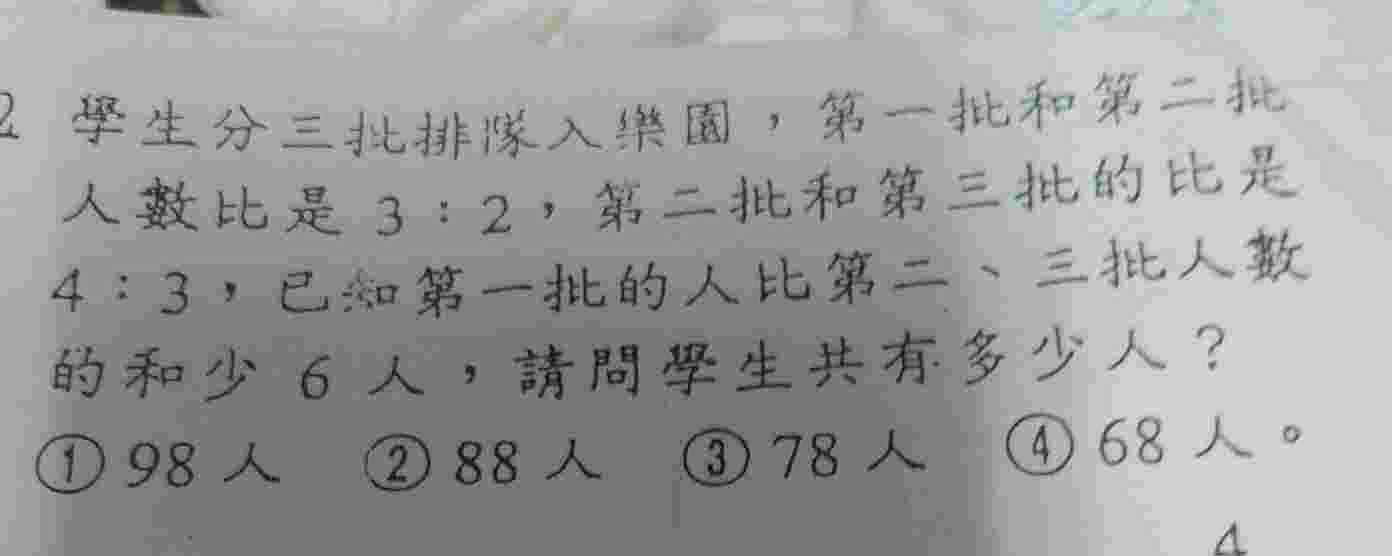 2 學生分三批排隊入樂園，第一批和第二批
人數比是 3：2，第二批和第三批的比是
4：3，已知第一批的人比第二、三批人數
的和少 6 人，請問學生共有多少人？
① 98 人 ② 88 人 ③ 78 人 ④ 68 人。
4